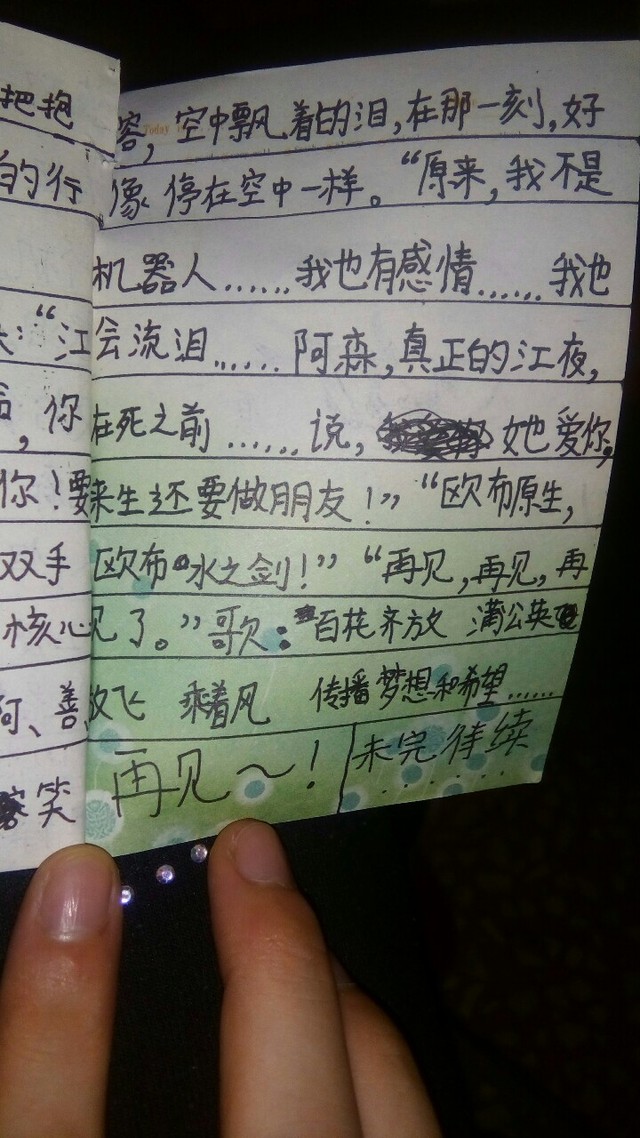 把抱
的行
:“江
,你
你!
双手
核心
阿、善
笑
容,空中飘着的泪,在那一刻,好
Today
像停在空中一样。“原来,我不是
机器人……我也有感情……我也
会流泪……阿森,真正的江夜,
在死之前……说,她爱你,
要来生还要做朋友!”“欧布原生,
欧布水之剑!”“再见,再见,再
见了。”歌:百花齐放 蒲公英
放飞 乘着风 传播梦想和希望……
再见~!
未完待续
........